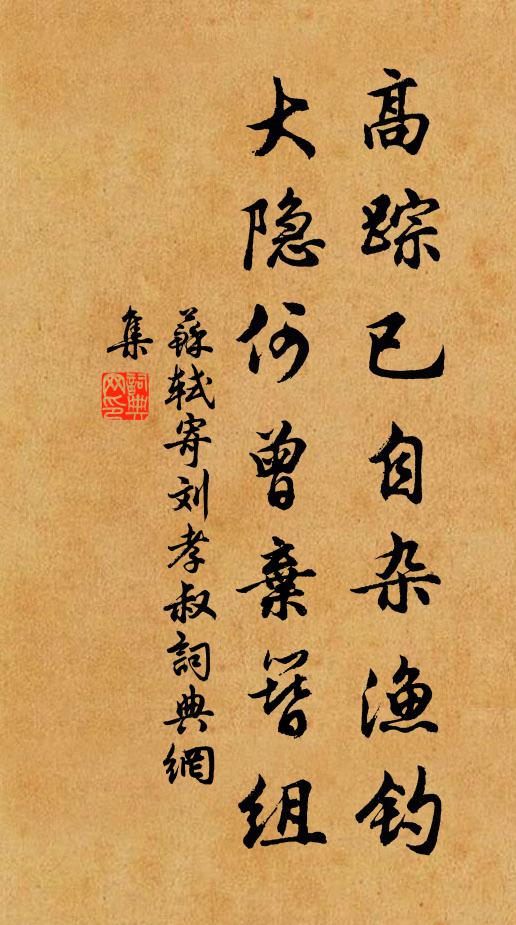 高踪已自杂渔钓
大隐何曾棄簪组
蘇轼寄刘孝叔詞典網
集
詞典网印